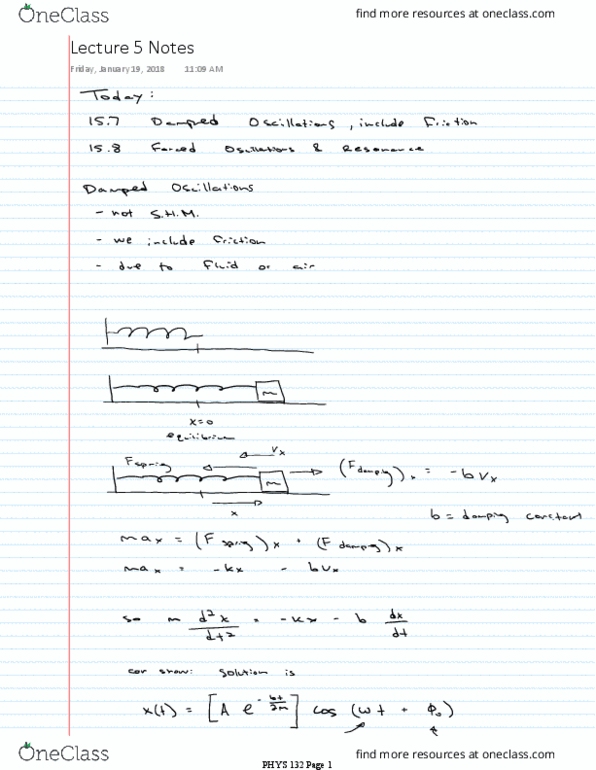 OneClass
find more resources at oneclass.com
Lecture 5 Notes
Friday, January 19, 2018 11:09 AM
Today:
15.7 Damped Oscillations, include Friction
15.8 Forced Oscillations & Resonance
Damped Oscillations
- not S.H.M.
- we include friction
- due to fluid or air
m
x=0
equilibrium
Vx
Fspring
(Fdamping)x = -bVx
m
x
b = damping constant
max = (Fspring)x + (Fdamping)x
max = -kx - bVx
so m d²x/dt² = -kx - b dx/dt
can show: solution is
x(t) = [A e^-bt/2m] cos (ωt + φ₀)
OneClass
find more resources at oneclass.com
PHYS 132 Page 1